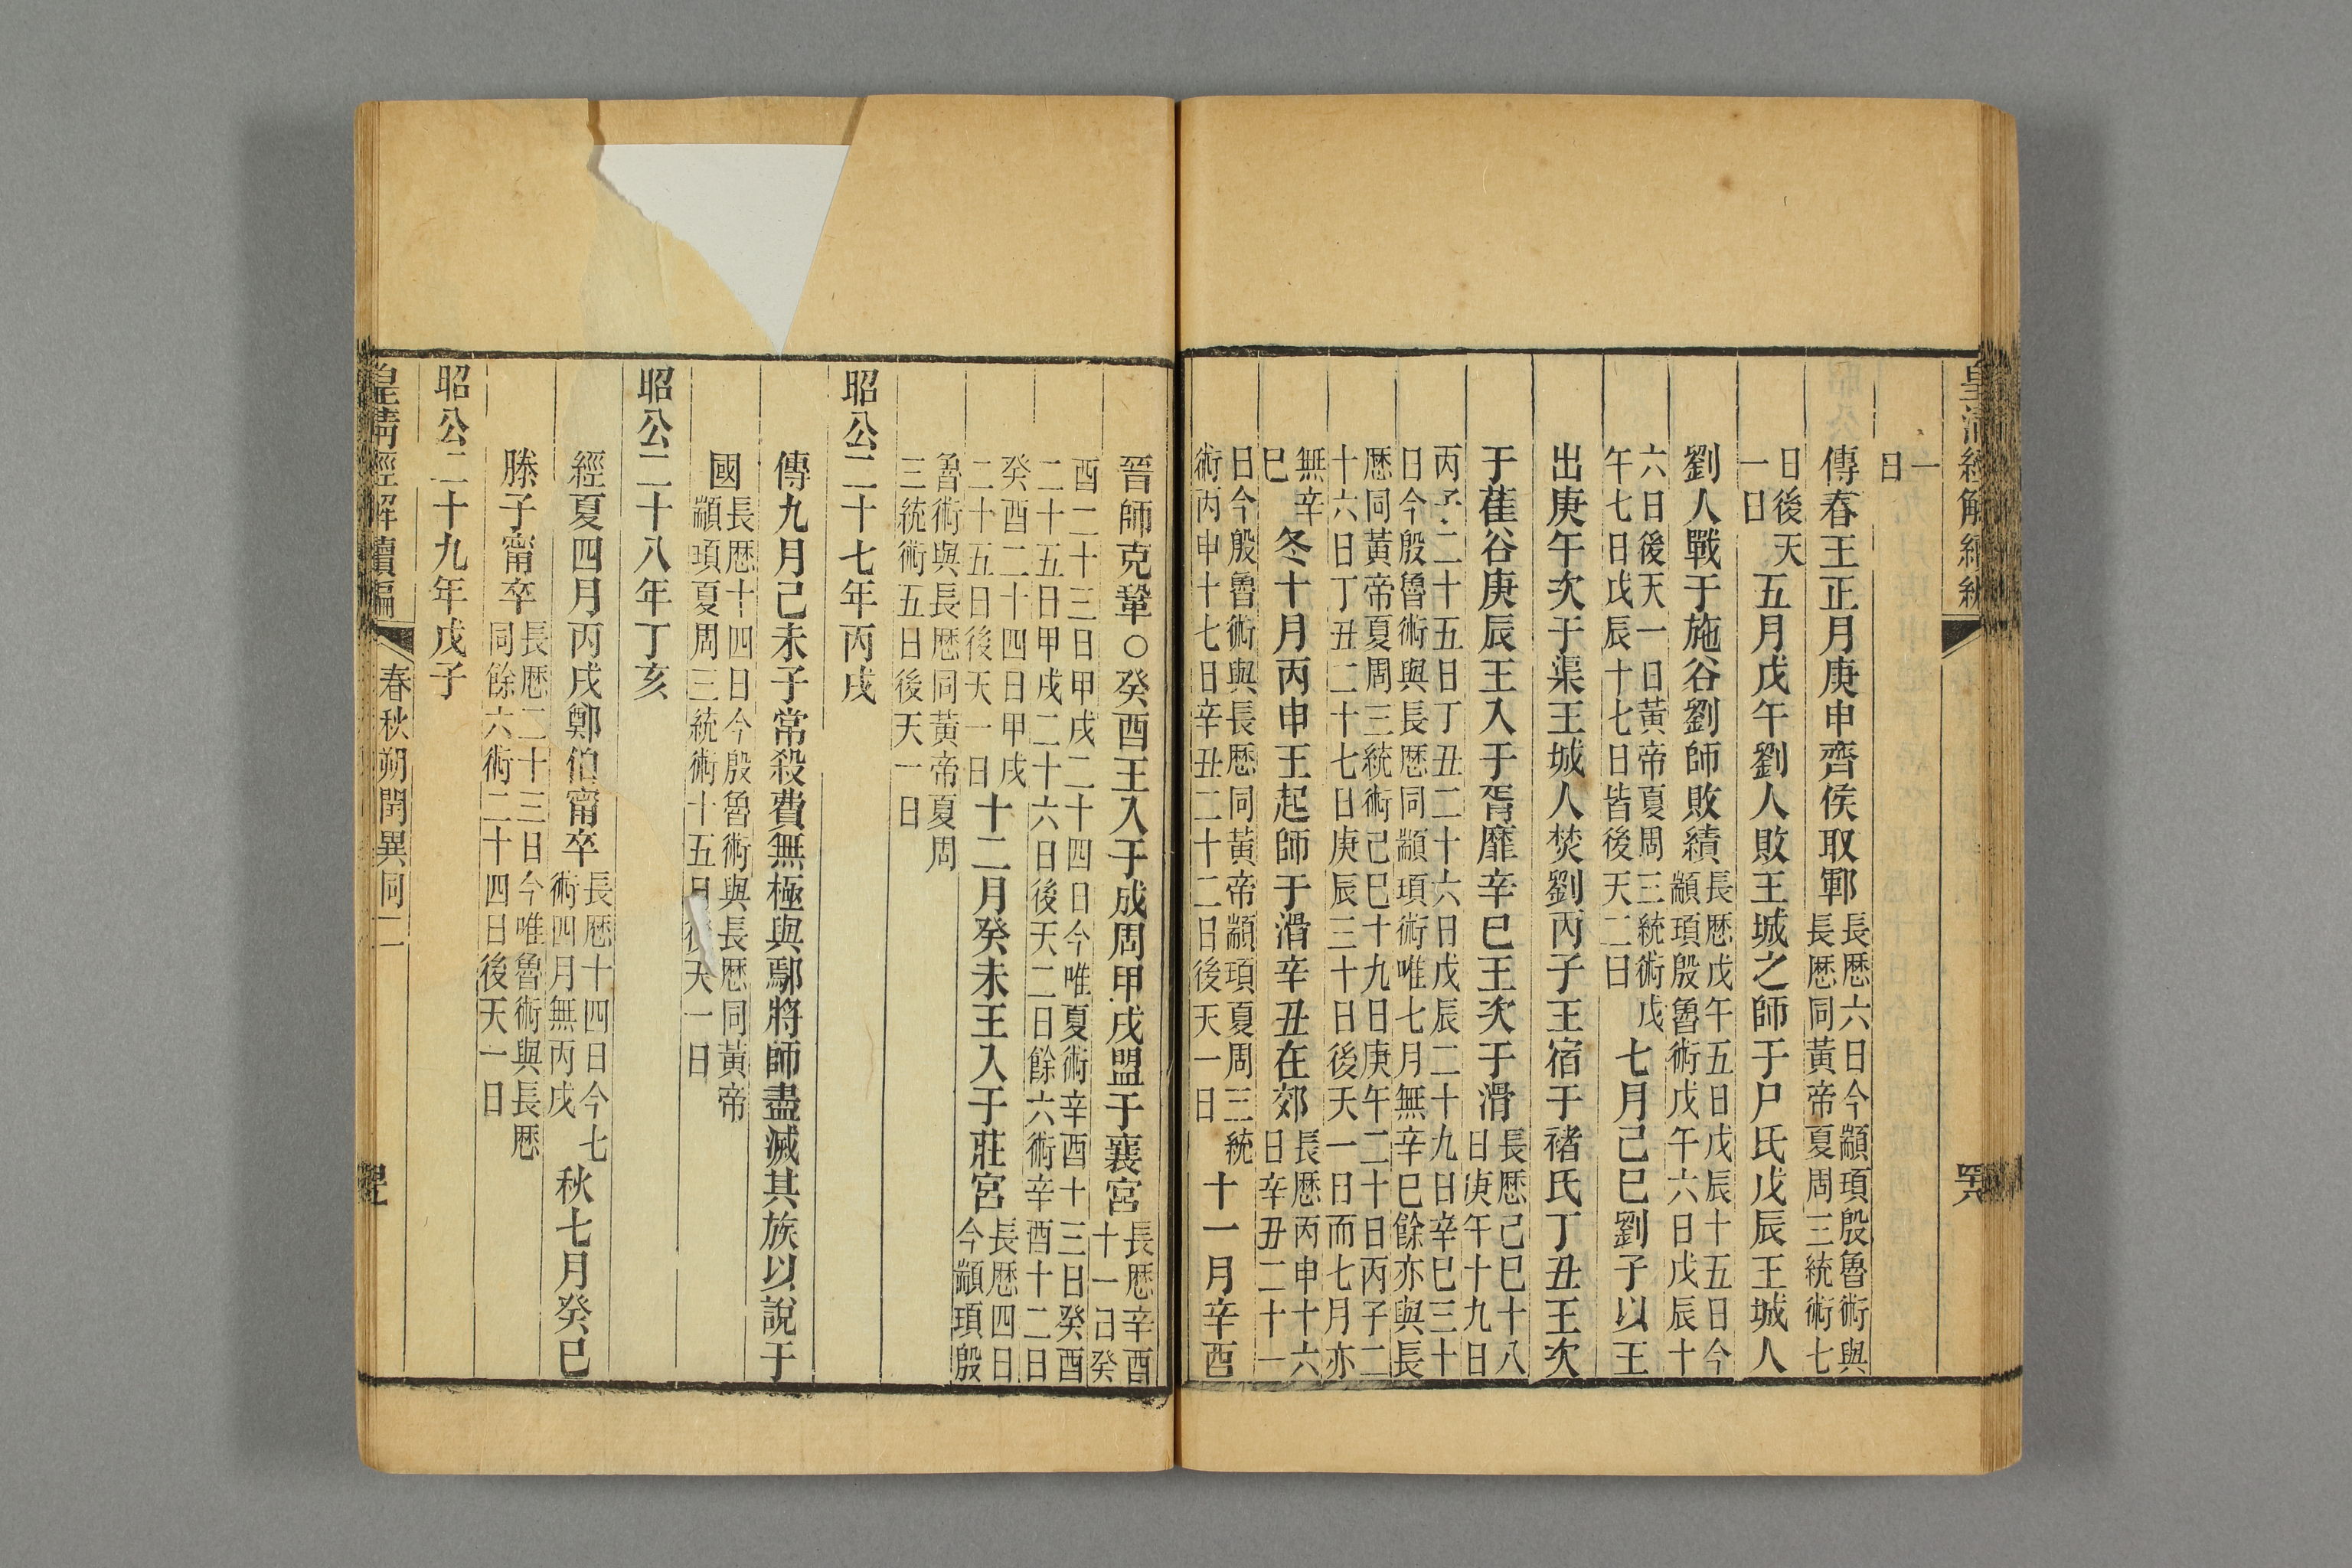 一日
傳春王正月庚申齊侯取鄆長歴六日今顓頊殷魯術與長歴同黃帝夏周三統術七
日後天一日五月戊午劉人敗王城之師于尸氏戊辰王城人
劉人戰于施谷劉師敗績長歴戊午五日戊辰十五日今顓頊殷魯術戊午六日戊辰十
六日後天一日黃帝夏周三統術戊午七日戊辰十七日皆後天二日七月己巳劉子以王
出庚午次于渠王城人焚劉丙子王宿于褚氏丁丑王次
于萑谷庚辰王入于胥靡辛巳王次于滑長歴己巳十八日庚午十九日
丙子二十五日丁丑二十六日戊辰二十九日辛巳三十日今殷魯術與長歴同顓頊術唯七月無辛巳餘亦與長
歴同黃帝夏周三統術己巳十九日庚午二十日丙子二十六日丁丑二十七日庚辰三十日後天一日而七月亦
無辛巳冬十月丙申王起師于滑辛丑在郊長歴丙申十六日辛丑二十一
日今殷魯術與長歴同黃帝顓頊夏周三統術丙申十七日辛丑二十二日後天一日十一月辛酉
晉師克鞏○癸酉王入于成周甲戌盟于襄宮長歴辛酉十一日癸
酉二十三日甲戌二十四日今唯夏術辛酉十三日癸酉二十五日甲戌二十六日後天二日餘六術辛酉十二日
癸酉二十四日甲戌二十五日後天一日十二月癸未王入于莊宮長歴四日今顓頊殷
魯術與長歴同黃帝夏周三統術五日後天一日
昭公二十七年丙戌
傳九月己未子常殺費無極與鄢將師盡滅其族以說于
國長歴十四日今殷魯術與長歴同黃帝顓頊夏周三統術十五日後天一日
昭公二十八年丁亥
經夏四月丙戌鄭伯甯卒長歴十四日今七術四月無丙戌秋七月癸巳
滕子甯卒長歴二十三日今唯魯術與長歴同餘六術二十四日後天一日
昭公二十九年戊子
皇清經解續編 春秋朔閏異同二